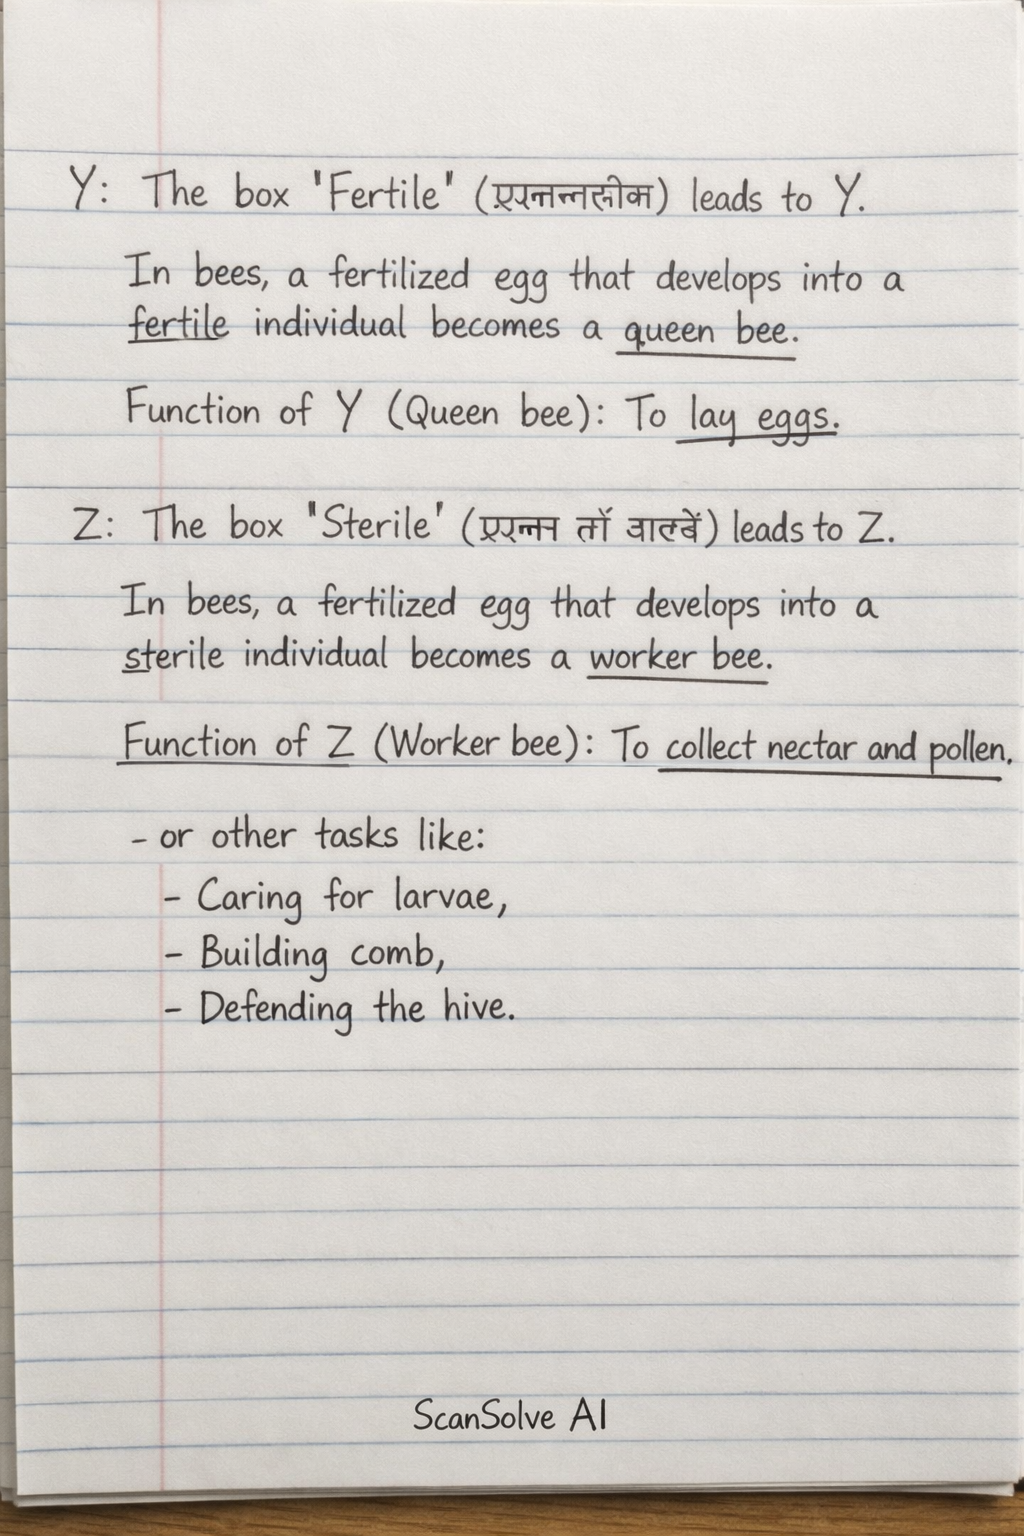 Y: The box "Fertile" ( ) leads to Y.
In bees, a fertilized egg that develops into a
fertile individual becomes a queen bee.
Function of Y (Queen bee): To lay eggs.
Z: The box "Sterile" ( ) leads to Z.
In bees, a fertilized egg that develops into a
sterile individual becomes a worker bee.
Function of Z (Worker bee): To collect nectar and pollen.
- or other tasks like:
- Caring for larvae,
- Building comb,
- Defending the hive.
ScanSolve AI